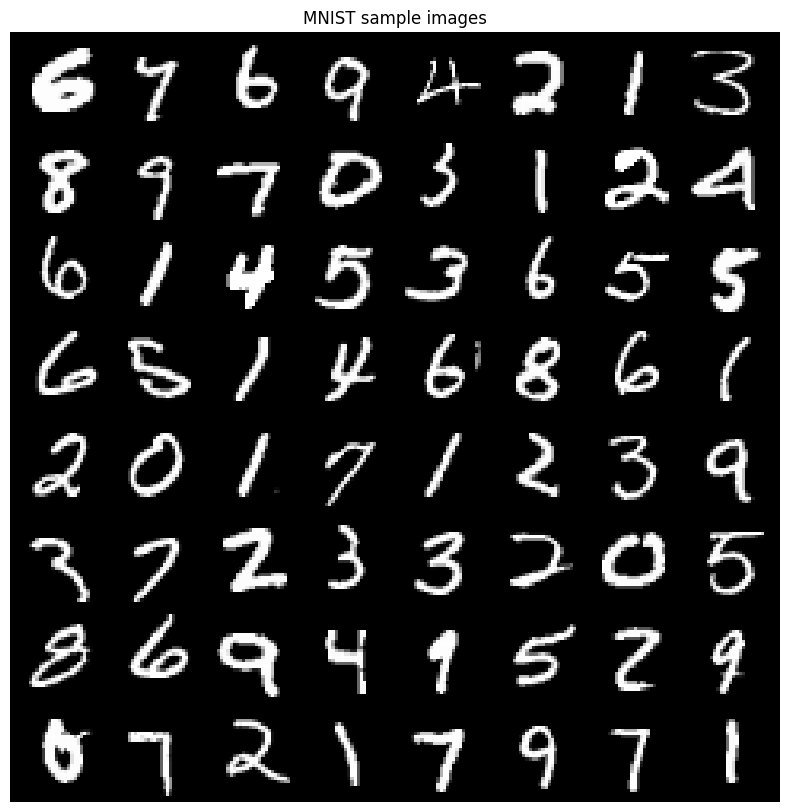 MNIST sample images
6 7 6 9 4 2 1 3
8 9 7 0 3 1 2 4
6 1 4 5 3 6 5 5
6 5 1 4 6 8 6 1
2 0 1 7 1 2 3 9
3 7 2 3 3 2 0 5
8 6 9 4 9 5 2 9
0 7 2 1 7 9 7 1